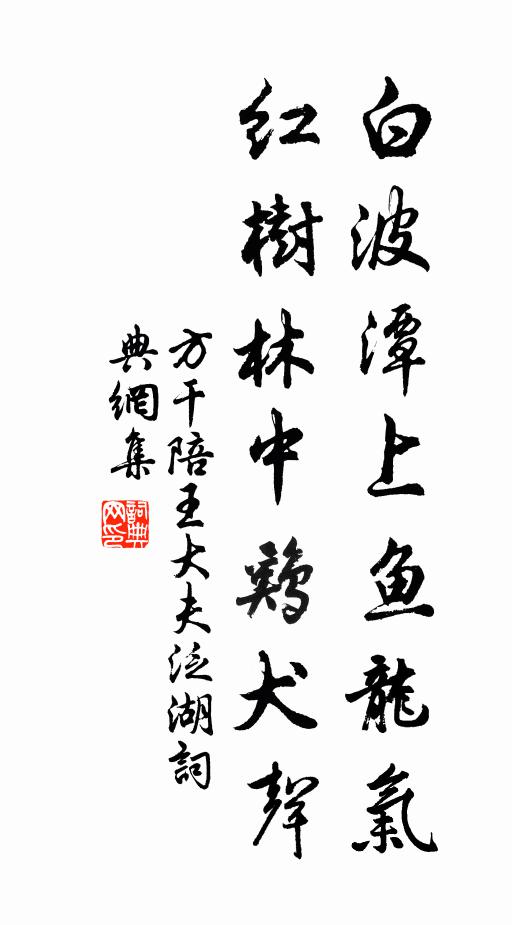 白波潭上鱼龍氣
紅樹林中鷄犬聲
方干陪王大夫泛湖詞
典網集
詞典
网印